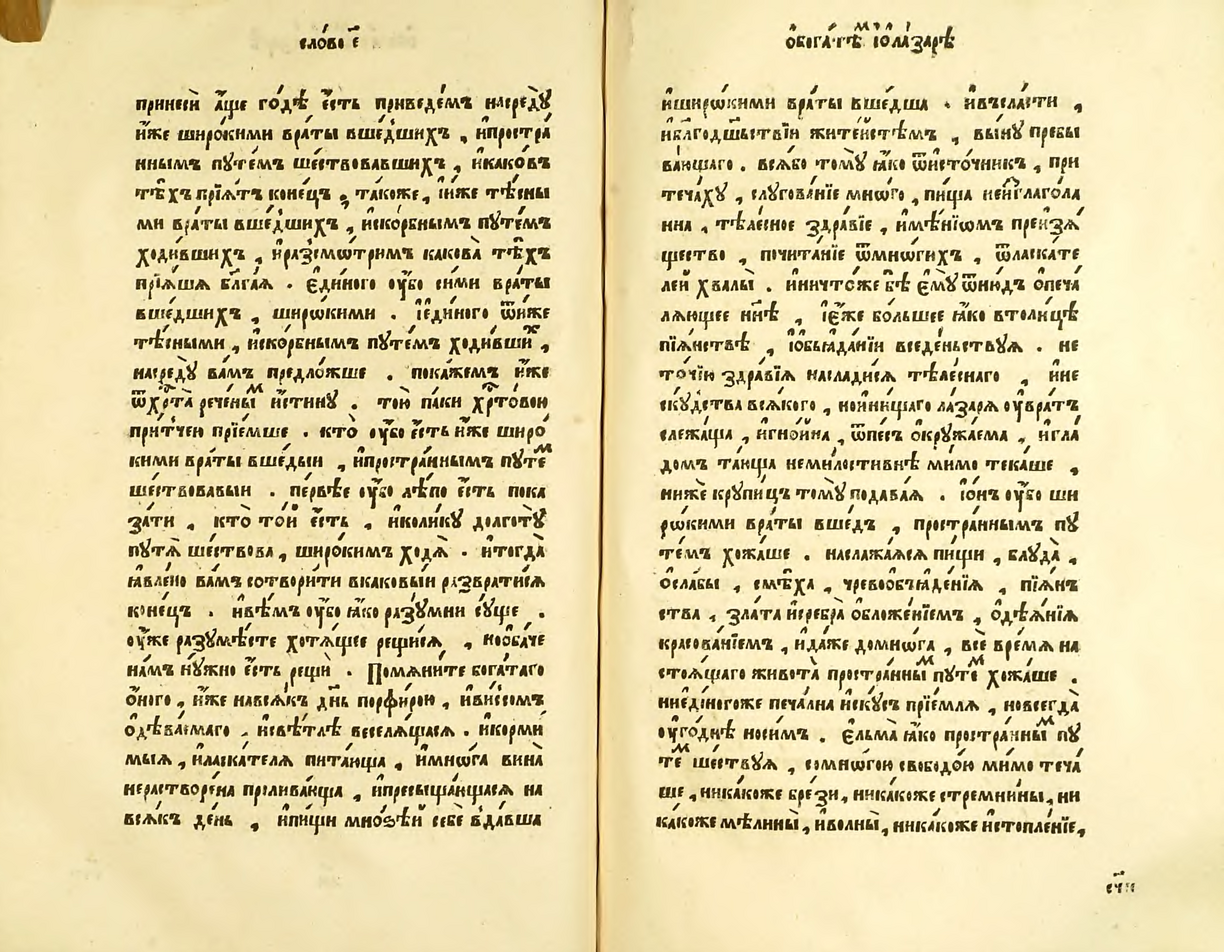 сло́во є҃
принесѝ а҆́ще го́дѣ є҆́сть приведе́мъ насредꙋ̀
и҆́же широ́кими враты̀ вше́дшихъ , и҆простра́
ннымъ пꙋте́мъ ше́ствовавшихъ , и҆како́въ
тѣ́хъ прїѧ́тъ коне́цъ , тако́же , и҆и҆́же тѣ́сны
ми враты̀ вше́дшихъ , и҆ско́рбнымъ пꙋте́мъ
ходи́вшихъ , и҆разсмѡ́тримъ какова̀ тѣ́хъ
прїѧ́шѧ бл҃га́ѧ . є҆ди́ного ᲂу҆̀бо си́ми враты̀
вше́дшихъ , ширѡ́кими . і҆є҆ди́ного ѿи҆́же
тѣ́сными , и҆ско́рбнымъ пꙋте́мъ ходи́вшиⷯ ,
насредꙋ̀ ва́мъ предло́жше . пока́жемъ и҆́же
ѿхрⷭ҇та̀ рече́ныⷨ и҆́стинꙋ . то́ю па́ки хрⷭ҇то́вою
при́тчею прїе́мше . кто̀ ᲂу҆̀бо є҆́сть и҆́же широ́
кими враты̀ вше́дыи , и҆простра́ннымъ пꙋте́ⷨ
ше́ствовавыи . пе́рвѣе ᲂу҆̀бо лѣ́по є҆́сть пока
за́ти , кто̀ то́й є҆́сть , и҆коли́кꙋ долготꙋ̀
пꙋтѧ̀ ше́ствова , широ́кимъ ходѧ̀ . и҆тогда̀
ꙗ҆вле́но ва́мъ сотвори́ти вкаковы́и разврати́сѧ
коне́цъ . и҆вѣ́мъ ᲂу҆̀бо ꙗ҆́ко разꙋ́мни сꙋ́ще .
ᲂу҆жѐ разꙋмѣ́сте хотѧ́щее рещи́сѧ , нооба́че
на́мъ нꙋ́жно є҆́сть рещѝ . Помѧни́те бога́таго
ѻ҆́ного , и҆́же навсѧ́къ дн҃ь порфи́рою , и҆ви́ссомъ
ѻ҆дѣва́емаго , и҆свѣ́тлѣ веселѧ́щасѧ . и҆корми́
мыѧ , и҆ласка́телѧ пита́юща , и҆мнѡ́га вина̀
нераство́рена пролива́юща , и҆пресыща́ющасѧ на
всѧ́къ де́нь , и҆пи́щи мно́зѣй себѐ вда́вша
ѻ҆бога́тѣⷨ і҆ѻ҆ла́зарѣ
и҆ширѡ́кими враты̀ вше́дша . и҆всла́сти ,
и҆бл҃годе́ньствїи жите́йстѣмъ , вы́нꙋ пребы
ва́ющаго . всѧ́бо томꙋ̀ ꙗ҆́ко ѿи҆сто́чникъ , при
теча́хꙋ , слꙋгова́нїе мно́го , пи́ща неи҆зглаго́ла
нна , тѣле́сное здра́вїе , и҆мѣ́нїѡмъ преизѧ́
щество , почита́нїе ѿмнѡ́гихъ , ѿласка́те
лей хвалы̀ . и҆ничто́же бѣ̀ є҆мꙋ̀ ѿню́дъ ѻ҆печа́
лѧющее нн҃ѣ , і҆є҆́же бо́льшее ꙗ҆́ко втоли́цѣ
пїѧ́нствѣ , і҆ѻ҆б̾ꙗда́нїи вседе́ньствꙋѧ . не
то́чїю здра́вїѧ наслади́сѧ тѣле́снаго , и҆не
скꙋ́дства всѧ́кого , нои҆ни́щаго ла́зарѧ ᲂу҆вра́тъ
слежа́ща , и҆гно́йна , ѿпе́съ ѻ҆крꙋжа́ема , и҆гла́
домъ та́юща неми́лостивнѣ ми́мо тека́ше ,
нижѐ крꙋпи́цъ томꙋ̀ подава́ѧ . і҆ѻ҆́нъ ᲂу҆̀бо ши
рѡ́кими враты̀ вше́дъ , простра́ннымъ пꙋ
те́мъ хожа́ше . наслажа́ѧсѧ пи́щи , блꙋда̀ ,
ѻ҆сла́бы , смѣ́ха , чревоѻб̾ꙗде́нїѧ , пїѧ́н
ства , зла́та и҆сребра̀ ѻ҆бложе́нїемъ , ѻ҆дѣѧ́нїѧ
красова́нїемъ , и҆да́же домнѡ́га , всѐ вре́мѧ на
стоѧ́щаго живота̀ простра́нныⷨ пꙋте́ⷨ хожа́ше .
ниеди́ногоже печа́лна и҆́скꙋсъ прїе́млѧ , новсегда̀
ᲂу҆го́днѣ носи́мъ . є҆льма̀ ꙗ҆́ко простра́нныⷨ пꙋ
те́ⷨ ше́ствꙋѧ , сомнѡ́гою свобо́дою ми́мо теча́
ше , ника́коже бре́зи , ника́коже стремни́ны , ни
ка́коже мѣлины̀ , и҆волны̀ , ника́коже и҆стопле́нїе ,